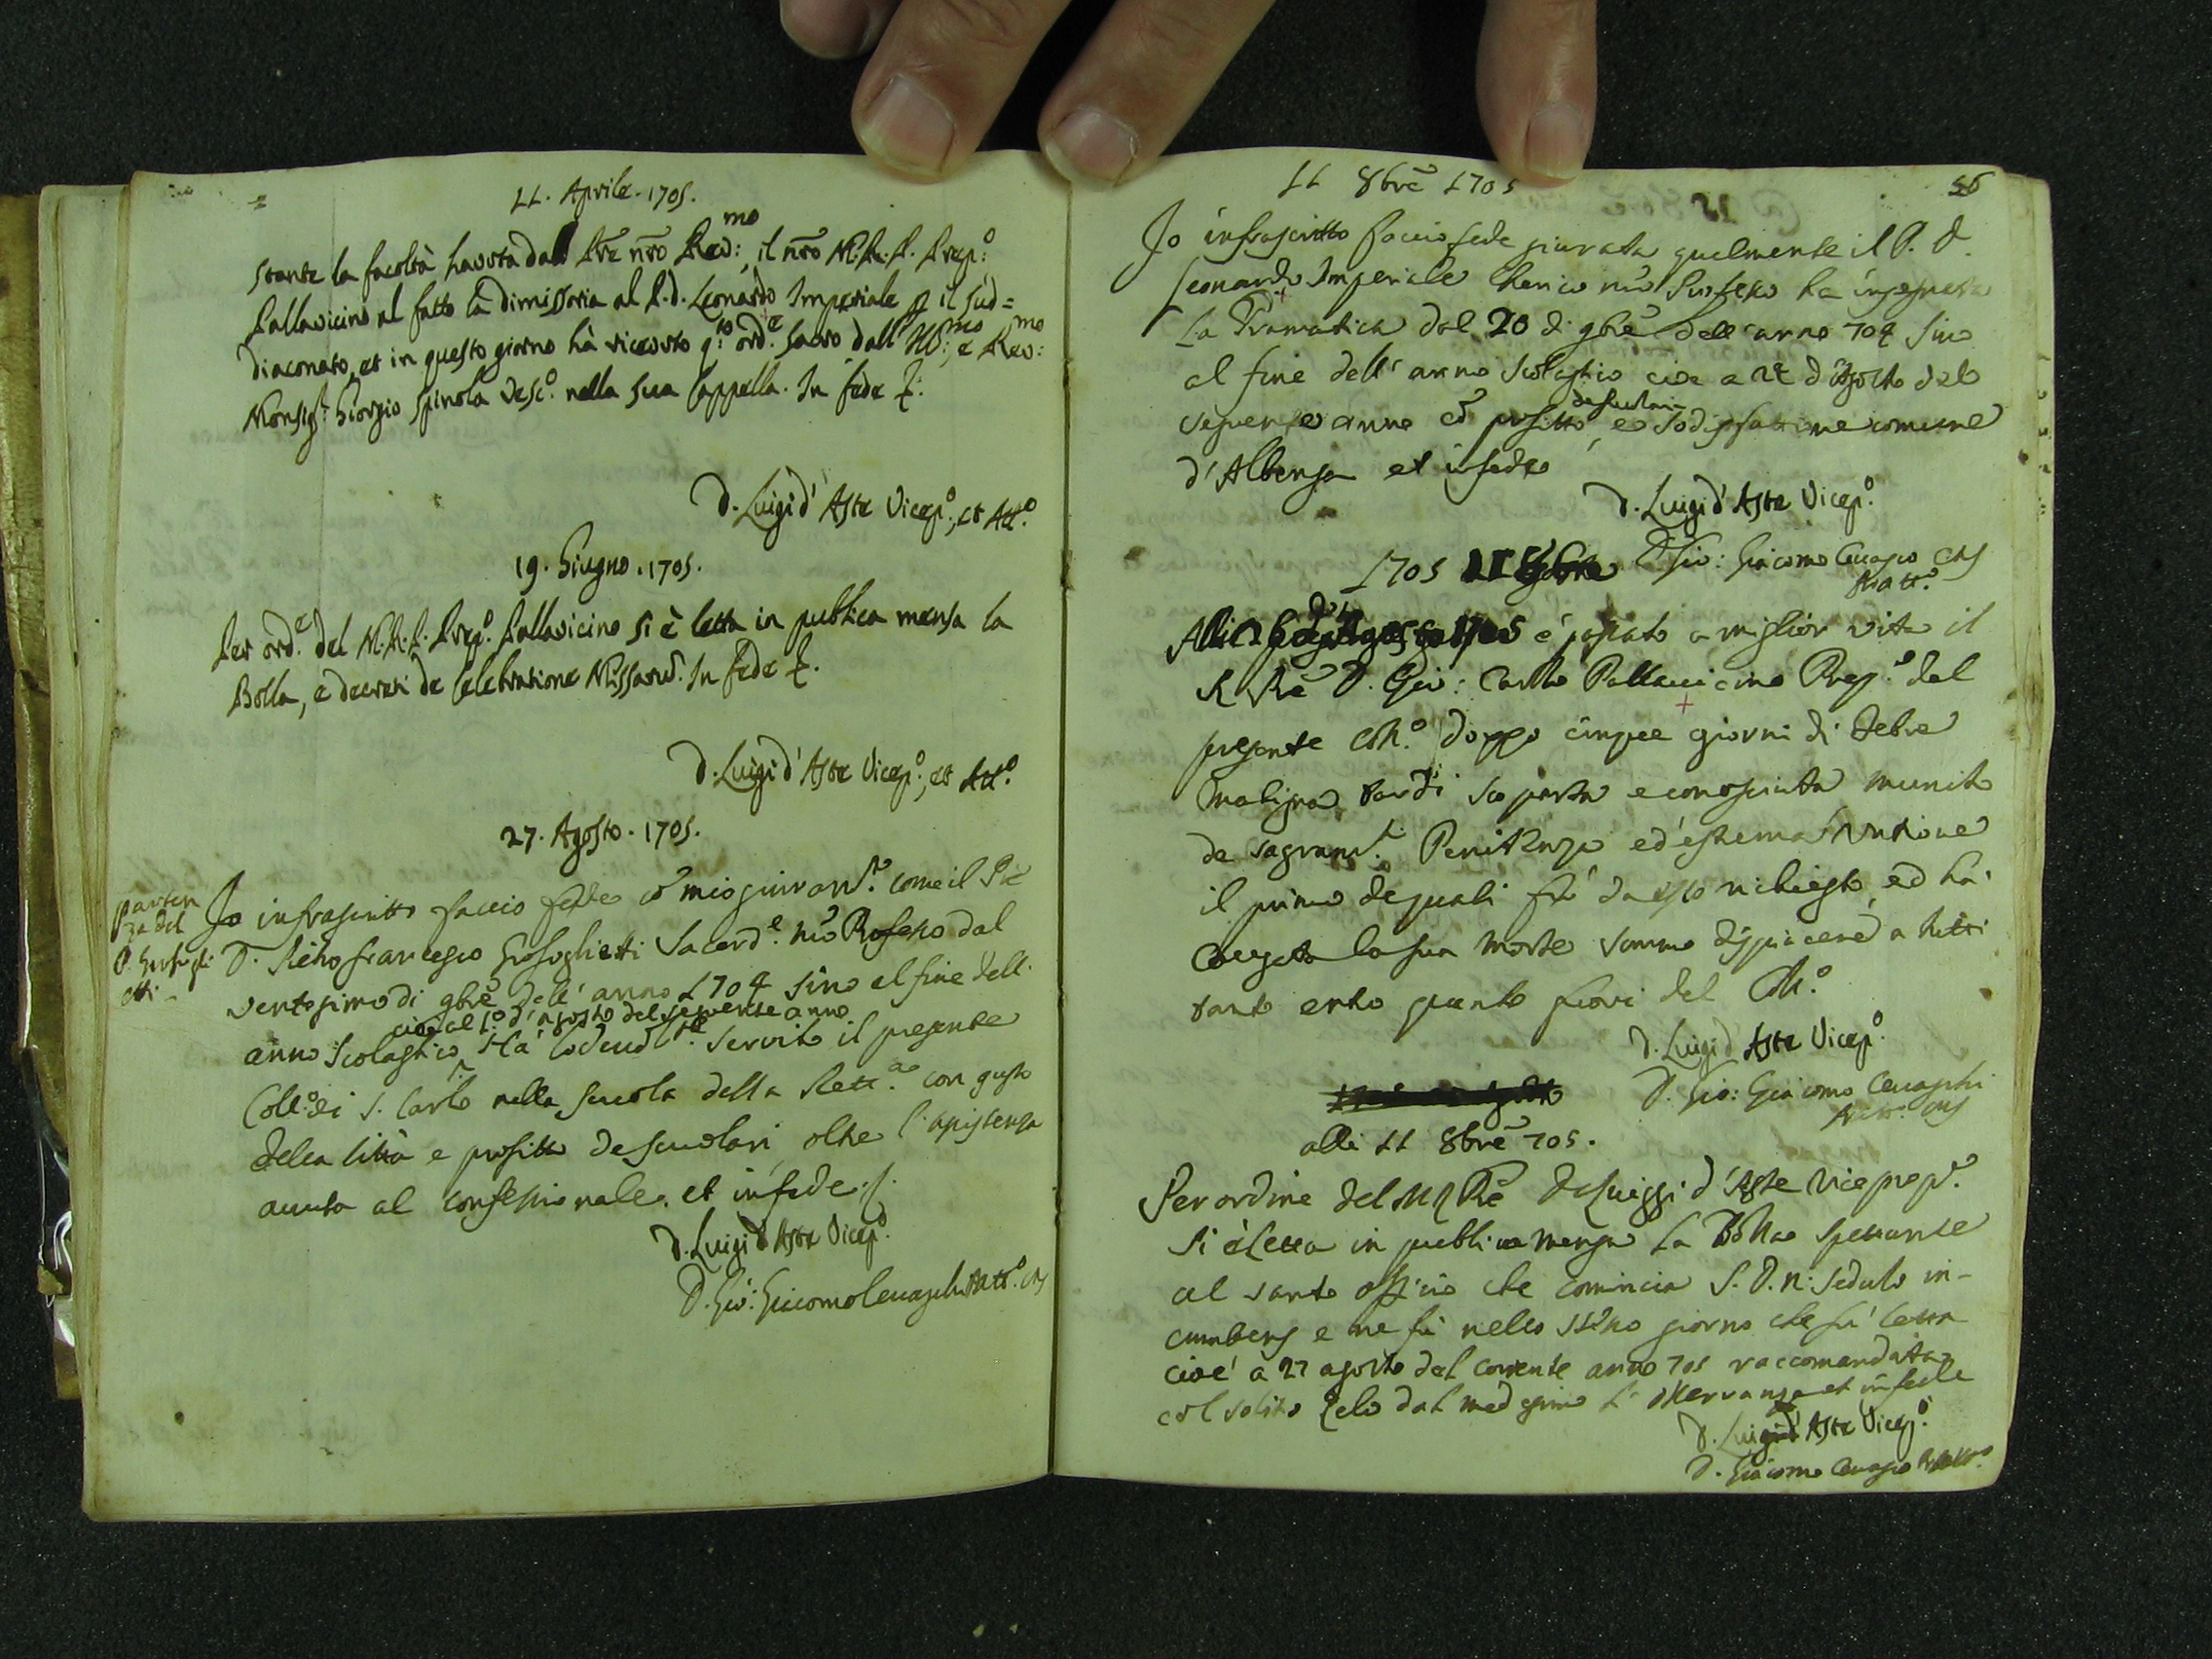 11. Aprile. 1705.
Stante la facoltà havuta dal Pre nro Revmo: il nro M.R.P. Prepo:
Pallavicino al fatto la dimissoria al P.D. Leonardo Imperiale p il sud=
diaconato, et in questo giorno hà ricevuto qto orde sacro dall' Illmo: e Revmo:
Monsigr Giorgio Spinola Vesco. nella sua Cappella. In fede
D. Luigi d'Aste Vicepo., et Atto.
19. Giugno. 1705.
Per orde. del M.R.P. Prepo. Pallavicino si è letta in publica mensa la
Bolla, e decreti de Celebratione Missarum. In fede
D. Luigi d'Aste Vicepo., et Atto.
27. Agosto. 1705.
Parten
za del
P. Grosogli
etti
Io infrascritto faccio fede cō mio giuramto. come il Pre
D. Pietro francesco Grosoglietti Sacerde. nro Professo dal
ventesimo di 9bre dell' anno 1704 sino al fine dell'
cioè al 1o. d'Agosto del seguente anno
anno scolastico Ha lodevolte. servito il presente
Collo. di S. Carlo nella scuola della Retta. con gusto
della Città e profitto de scuolari oltre l'assistenza
avuta al confessionale. et in fede
D. Luigi d'Aste Vicepo.
D. Gio: Giacomo Cevaschi Atto. CRS
11 8bre 1705
56
Io infrascritto faccio fede giurata qualmente il P. D.
Leonardo Imperiale Cherico nro Professo ha insegnato
La Gramatica dal 20 di 9bre dell' anno 704 sino
al fine dell' anno scolastico cioè a 27 d'Agosto del
seguente anno cō profitto de scuolari e sodisfattione comune
d'Albenga et in fede
D. Luigi d'Aste Vicepo.
1705
D. Gio: Giacomo Cevasco CRS
Atto.
Alli è passato a miglior vita il
R. Pre D. Gio: Carlo Pallavicino Prepo. del
presente Collo. doppo cinque giorni di febre
maligna tardi scoperta e conosciuta munito
de sagramti. Penitenza ed estrema Untione
il primo de quali fù da esso richiesto, ed hà
caggto la sua morte sommo dispiacere a tutti
tanto entro quanto fuori del Collo.
D. Luigi d'Aste Vicepo.
D. Gio: Giacomo Cevaschi
Atto. CRS
alli 11 8bre 705.
Per ordine del M R Pre D. Luiggi d'Aste Viceprepo.
Si è Letta in publica mensa La Bolla spettante
al santo officio che comincia S. D. N: sedulo in-
cumbens e ne fù nello stesso giorno che fù letta
cioè a 27 agosto del corrente anno 705 raccomandata
col solito Zelo dal medesimo L'osservanza et in fede
D. Luigi d'Aste Vicepo.
D. Giacomo Cevasco Atto.